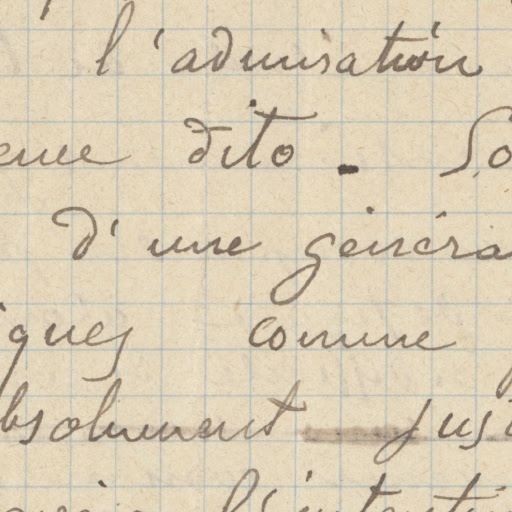 l'admiration
dito. So
d'une généra
iques comme
bsolument jus
l'intenti